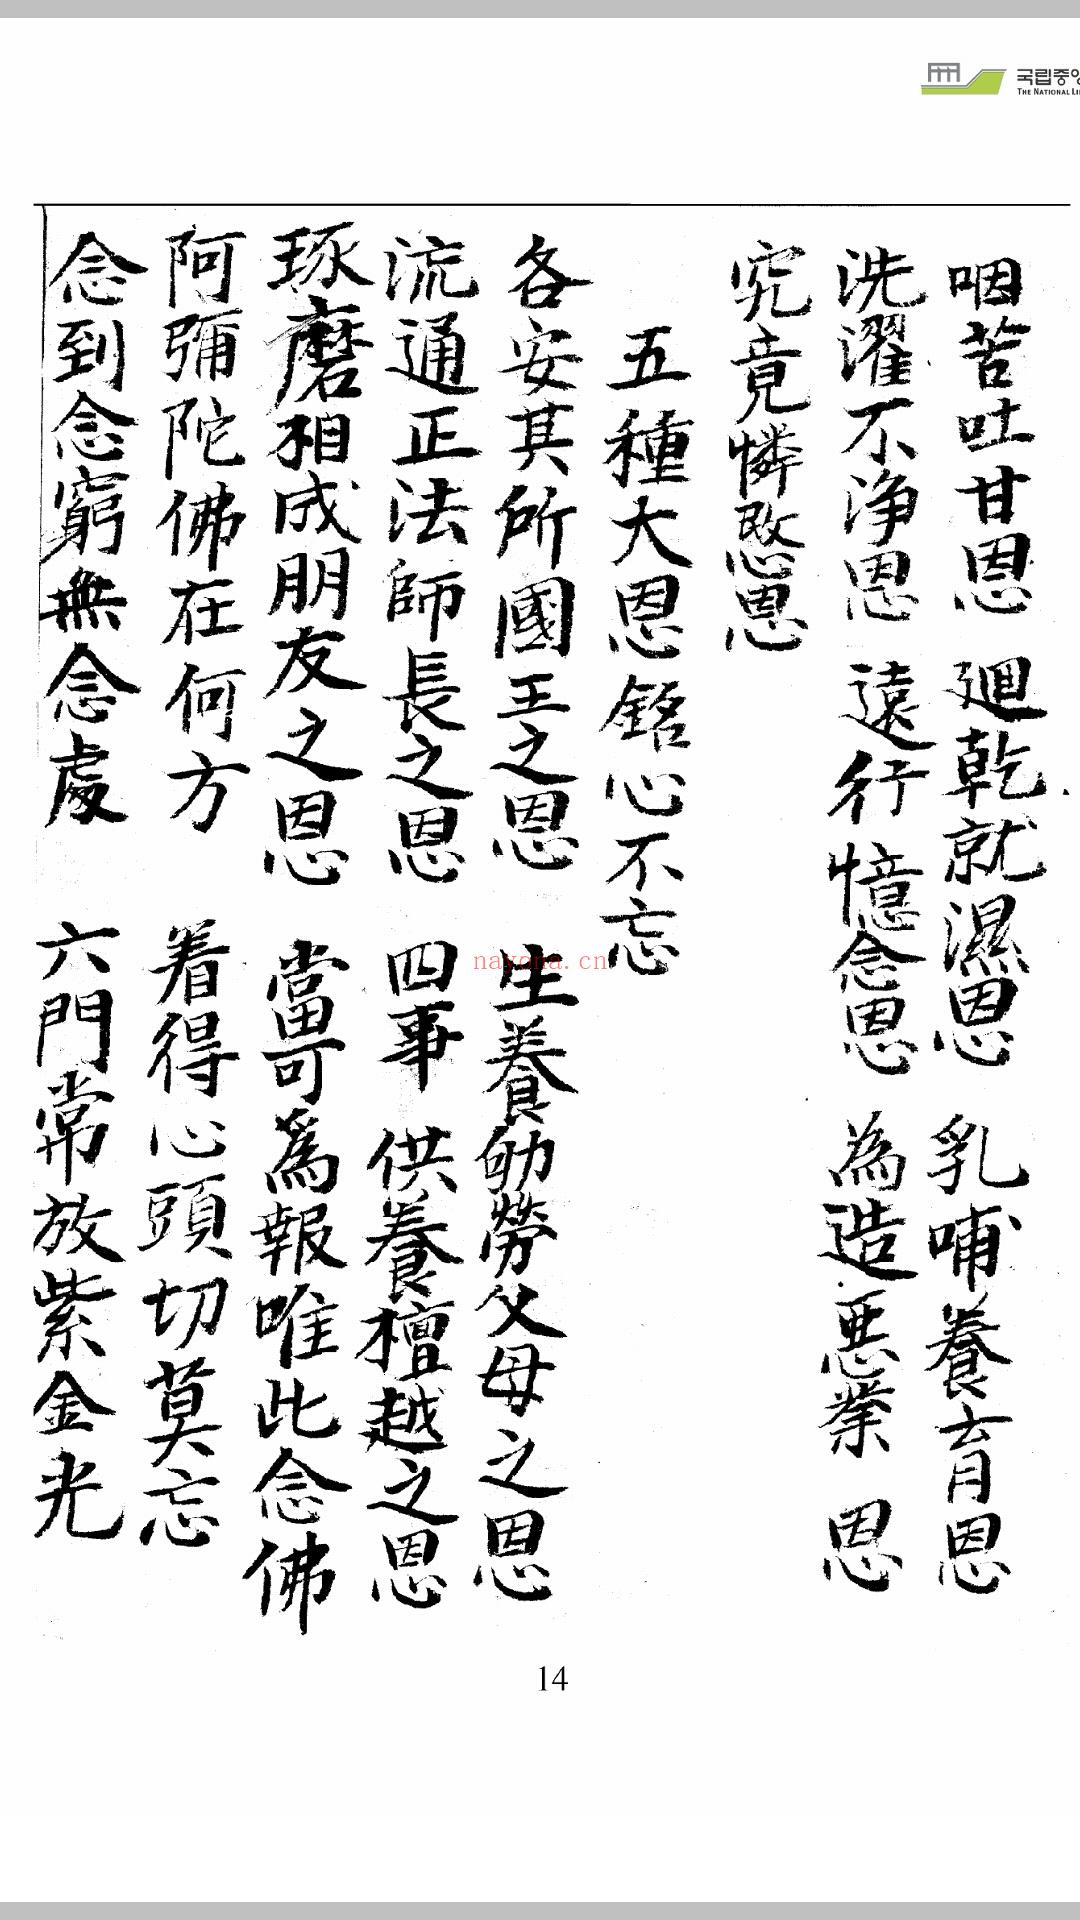 국립중앙
THE NATIONAL LI
咽苦吐甘恩 廻乾就濕恩 乳哺養育恩
洗濯不净恩 遠行憶念恩 為造惡業恩
究竟憐愍恩
五種大恩銘心不忘
各安其所國王之恩 生養劬勞父母之恩
流通正法師長之恩 四事供養檀越之恩
琢磨相成朋友之恩 當可為報唯此念佛
阿彌陀佛在何方 着得心頭切莫忘
念到念窮無念處 六門常放紫金光
nayona.cn
14